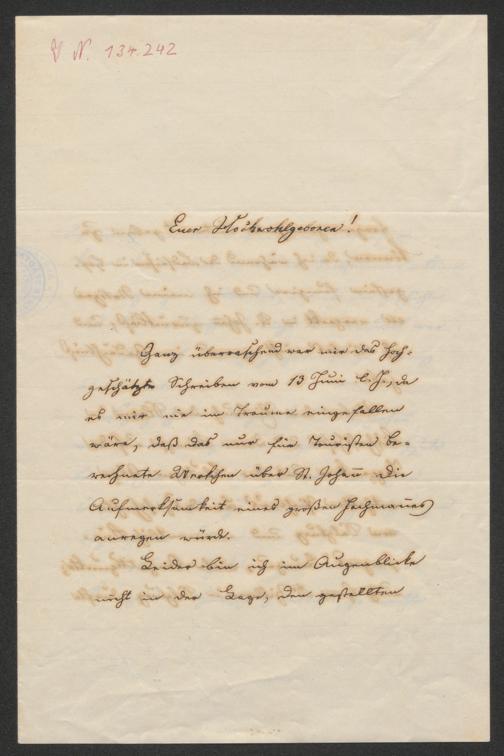 V N. 134.242
Euer Hochwohlgeboren!
Ganz überraschend war mir das hoch-
geschätzte Schreiben vom 13 Juni l. J., da
es mir nie im Traume eingefallen
wäre, daß das nur für Touristen be-
rechnete Werkchen über St. Johann die
Aufmerksamkeit eines großen Fachmannes
anregen würde.
Leider bin ich im Augenblicke
nicht in der Lage, den gestellten